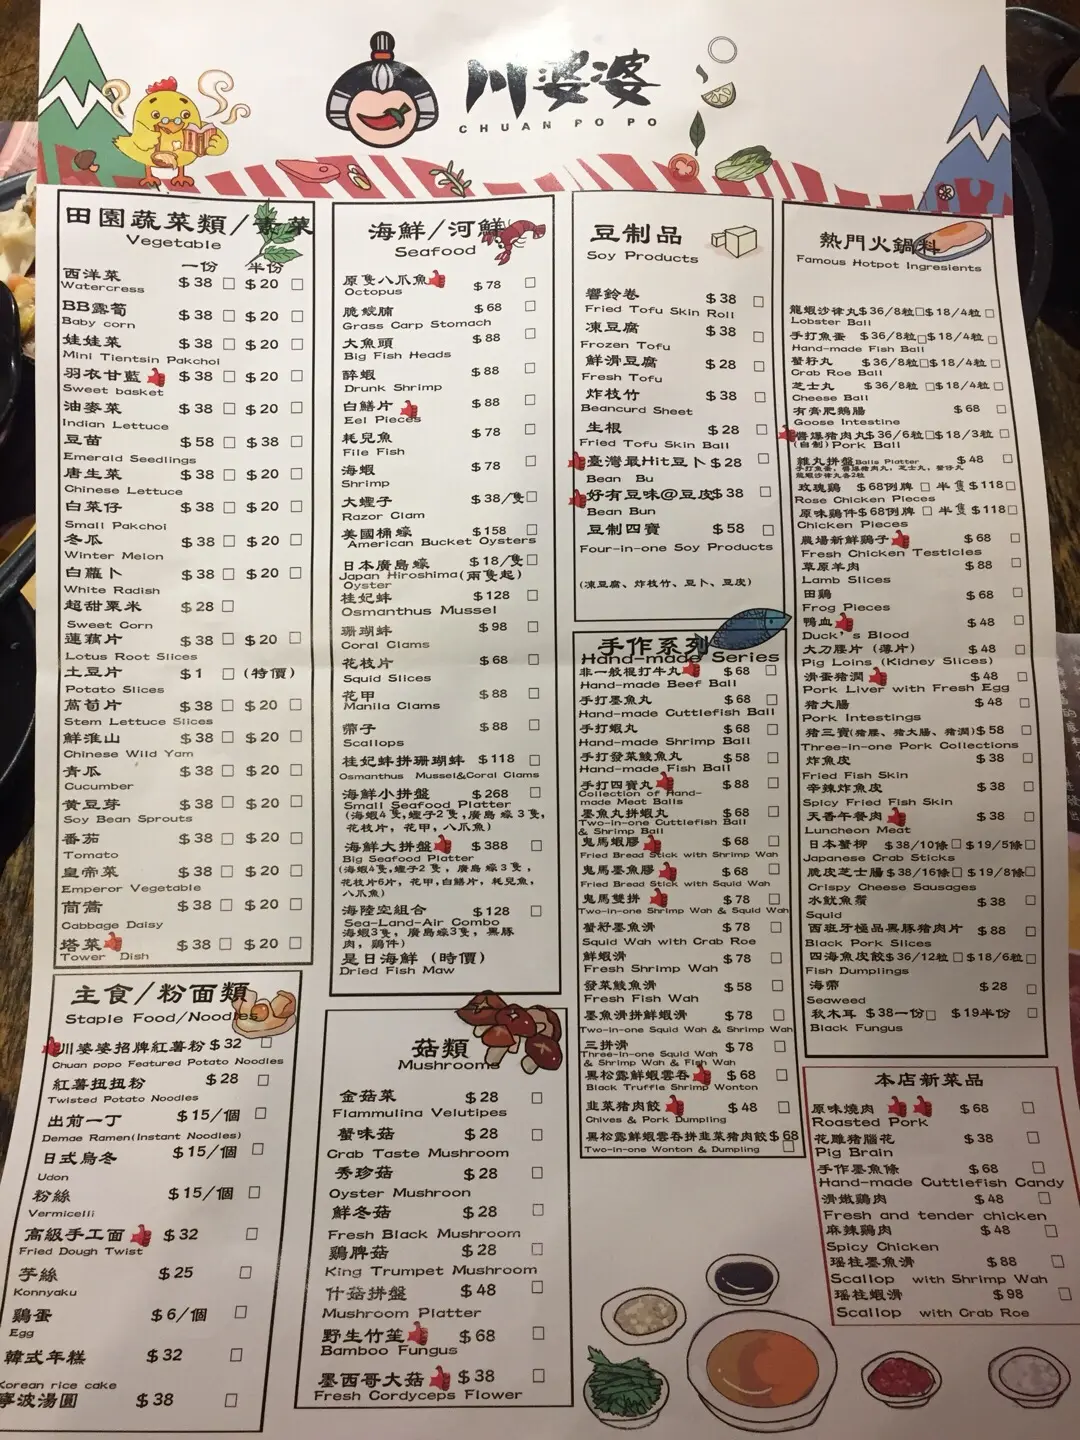 川婆婆
CHUAN PO PO
田園蔬菜類/素菜
Vegetable
一份 半份
西洋菜 $38 □ $20 □
Watercress
BB露筍 $38 □ $20 □
Baby corn
娃娃菜 $38 □ $20 □
Mini Tientsin Pakchoi
羽衣甘藍 $38 □ $20 □
Sweet basket
油麥菜 $38 □ $20 □
Indian Lettuce
豆苗 $58 □ $38 □
Emerald Seedlings
唐生菜 $38 □ $20 □
Chinese Lettuce
白菜仔 $38 □ $20 □
Small Pakchoi
冬瓜 $38 □ $20 □
Winter Melon
白蘿卜 $38 □ $20 □
White Radish
超甜粟米 $28 □
Sweet Corn
蓮藕片 $38 □ $20 □
Lotus Root Slices
土豆片 $1 □ (特價)
Potato Slices
萵筍片 $38 □ $20 □
Stem Lettuce Slices
鮮淮山 $38 □ $20 □
Chinese Wild Yam
青瓜 $38 □ $20 □
Cucumber
黄豆芽 $38 □ $20 □
Soy Bean Sprouts
番茄 $38 □ $20 □
Tomato
皇帝菜 $38 □ $20 □
Emperor Vegetable
茼蒿 $38 □ $20 □
Cabbage Daisy
塔菜 $38 □ $20 □
Tower Dish
主食/粉面類
Staple Food/Noodles
川婆婆招牌紅薯粉 $32 □
Chuan popo Featured Potato Noodles
紅薯扭扭粉 $28 □
Twisted Potato Noodles
出前一丁 $15/個 □
Demae Ramen(Instant Noodles)
日式烏冬 $15/個 □
Udon
粉絲 $15/個 □
Vermicelli
高級手工面 $32 □
Fried Dough Twist
芋絲 $25 □
Konnyaku
鷄蛋 $6/個 □
Egg
韓式年糕 $32 □
Korean rice cake
寧波湯圓 $38 □
海鮮/河鮮
Seafood
原隻八爪魚 $78 □
Octopus
脆鯇腩 $68 □
Grass Carp Stomach
大魚頭 $88 □
Big Fish Heads
醉蝦 $88 □
Drunk Shrimp
白鱔片 $88 □
Eel Pieces
耗兒魚 $78 □
File Fish
海蝦 $78 □
Shrimp
大蟶子 $38/隻 □
Razor Clam
美國桶蠔 $158 □
American Bucket Oysters
日本廣島蠔 $18/隻 □
Japan Hiroshima(兩隻起)
Oyster
桂妃蚌 $128 □
Osmanthus Mussel
珊瑚蚌 $98 □
Coral Clams
花枝片 $68 □
Squid Slices
花甲 $88 □
Manila Clams
帶子 $88 □
Scallops
桂妃蚌拼珊瑚蚌 $118 □
Osmanthus Mussel&Coral Clams
海鮮小拼盤 $268 □
Small Seafood Platter
(海蝦4隻,蟶子2隻,廣島蠔3隻,
花枝片，花甲,八爪魚)
海鮮大拼盤 $388 □
Big Seafood Platter
(海蝦4隻,蟶子2隻，廣島蠔3隻，
花枝片6片，花甲,白鱔片，耗兒魚，
八爪魚)
海陸空組合 $128 □
Sea-Land-Air Combo
海蝦3隻，廣島蠔3隻，黑豚
肉，鷄件)
是日海鮮 (時價) □
Dried Fish Maw
菇類
Mushrooms
金菇菜 $28 □
Flammulina Velutipes
蟹味菇 $28 □
Crab Taste Mushroom
秀珍菇 $28 □
Oyster Mushroon
鮮冬菇 $28 □
Fresh Black Mushroom
鷄脾菇 $28 □
King Trumpet Mushroom
什菇拼盤 $48 □
Mushroom Platter
野生竹笙 $68 □
Bamboo Fungus
墨西哥大菇 $38 □
Fresh Cordyceps Flower
豆制品
Soy Products
響鈴卷 $38 □
Fried Tofu Skin Roll
凍豆腐 $38 □
Frozen Tofu
鮮滑豆腐 $28 □
Fresh Tofu
炸枝竹 $38 □
Beancurd Sheet
生根 $28 □
Fried Tofu Skin Ball
臺灣最Hit豆卜 $28 □
Bean Bu
好有豆味@豆皮 $38 □
Bean Bun
豆制四寶 $58 □
Four-in-one Soy Products
(凍豆腐、炸枝竹、豆卜、豆皮)
手作系列
Hand-made Series
非一般棍打牛丸 $68 □
Hand-made Beef Ball
手打墨魚丸 $68 □
Hand-made Cuttlefish Ball
手打蝦丸 $68 □
Hand-made Shrimp Ball
手打發菜鯪魚丸 $58 □
Hand-made Fish Ball
手打四寶丸 $88 □
Collection of Hand-
made Meat Balls
墨魚丸拼蝦丸 $68 □
Two-in-one Cuttlefish Ball
& Shrimp Ball
鬼馬蝦膠 $68 □
Fried Bread Stick with Shrimp Wah
鬼馬墨魚膠 $68 □
Fried Bread Stick with Squid Wah
鬼馬雙拼 $78 □
Two-in-one Shrimp Wah & Squid Wah
蟹籽墨魚滑 $78 □
Squid Wah with Crab Roe
鮮蝦滑 $78 □
Fresh Shrimp Wah
發菜鯪魚滑 $58 □
Fresh Fish Wah
墨魚滑拼鮮蝦滑 $78 □
Two-in-one Squid Wah & Shrimp Wah
三拼滑 $78 □
Three-in-one Squid Wah
& Shrimp Wah & Fish Wah
黑松露鮮蝦雲吞 $68 □
Black Truffle Shrimp Wonton
韭菜猪肉餃 $48 □
Chives & Pork Dumpling
黑松露鮮蝦雲吞拼韭菜猪肉餃 $68 □
Two-in-one Wonton & Dumpling
熱門火鍋料
Famous Hotpot Ingresients
龍蝦沙律丸 $36/8粒 □ $18/4粒 □
Lobster Ball
手打魚蛋 $36/8粒 □ $18/4粒 □
Hand-made Fish Ball
蟹籽丸 $36/8粒 □ $18/4粒 □
Crab Roe Ball
芝士丸 $36/8粒 □ $18/4粒 □
Cheese Ball
有膏肥鵝腸 $68 □
Goose Intestine
醬爆猪肉丸 $36/6粒 □ $18/3粒 □
(自制) Pork Ball
雜丸拼盤 Balls Platter $48 □
手打魚蛋，醬爆猪肉丸，芝士丸，蟹仔丸
龍蝦沙律丸各2粒
玫瑰鷄 $68例牌 □ 半隻$118 □
Rose Chicken Pieces
原味鷄件 $68例牌 □ 半隻$118 □
Chicken Pieces
農場新鮮鷄子 $68 □
Fresh Chicken Testicles
草原羊肉 $88 □
Lamb Slices
田鷄 $68 □
Frog Pieces
鴨血 $48 □
Duck's Blood
大刀腰片 (薄片) $48 □
Pig Loins (Kidney Slices)
滑蛋猪潤 $48 □
Pork Liver with Fresh Egg
猪大腸 $48 □
Pork Intestings
猪三寶(猪腰、猪大腸、猪潤) $58 □
Three-in-one Pork Collections
炸魚皮 $38 □
Fried Fish Skin
辛辣炸魚皮 $38 □
Spicy Fried Fish Skin
天香午餐肉 $38 □
Luncheon Meat
日本蟹柳 $38/10條 □ $19/5條 □
Japanese Crab Sticks
脆皮芝士腸 $38/16條 □ $19/8條 □
Crispy Cheese Sausages
水魷魚鬚 $38 □
Squid
西班牙極品黑豚猪肉片 $88 □
Black Pork Slices
四海魚皮餃 $36/12粒 □ $18/6粒 □
Fish Dumplings
海帶 $28 □
Seaweed
秋木耳 $38一份 □ $19半份 □
Black Fungus
本店新菜品
原味燒肉 $68 □
Roasted Pork
花雕猪腦花 $38 □
Pig Brain
手作墨魚條 $68 □
Hand-made Cuttlefish Candy
滑嫩鷄肉 $48 □
Fresh and tender chicken
麻辣鷄肉 $48 □
Spicy Chicken
瑶柱墨魚滑 $88 □
Scallop with Shrimp Wah
瑶柱蝦滑 $98 □
Scallop with Crab Roe